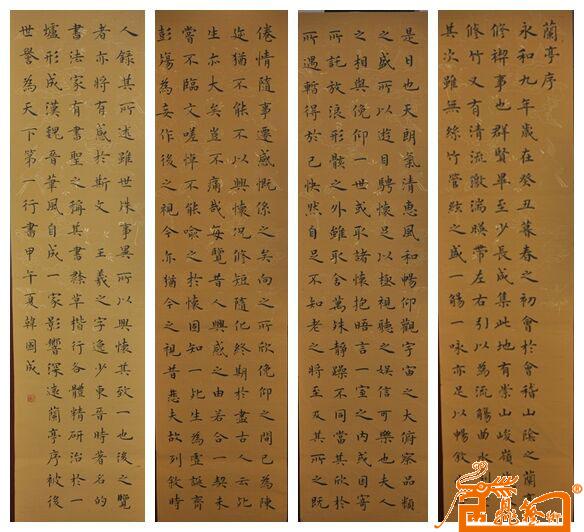 蘭亭序
永和九年歲在癸丑暮春之初會於會稽山陰之蘭亭
修禊事也群賢畢至少長咸集此地有崇山峻嶺
修竹又有清流激湍映帶左右引以為流觴曲水
其次雖無絲竹管弦之盛一觴一詠亦足以暢敘
是日也天朗氣清惠風和暢仰觀宇宙之大俯察品類
之盛所以遊目騁懷足以極視聽之娛信可樂也夫人
之相與俯仰一世或取諸懷抱晤言一室之內或因寄
所託放浪形骸之外雖取舍萬殊靜躁不同當其欣於
所遇暫得於己快然自足不知老之將至及其所之既
倦情隨事遷感慨係之矣向之所欣俛仰之間已為陳
迹猶不能不以興懷況修短隨化終期於盡古人云死
生亦大矣豈不痛哉每覽昔人興感之由若合一契未
嘗不臨文嗟悼不能喻之於懷固知一死生為虛誕齊
彭殤為妄作後之視今亦猶今之視昔悲夫故列敘時
人錄其所述雖世殊事異所以興懷其致一也後之覽
者亦將有感於斯文 王羲之字逸少東晉時著名的
書法家有書聖之稱其書隸草楷行各體精研治於一
爐形成漢魏晉華風自成一家影響深遠蘭亭序被後
世譽為天下第一行書甲午夏韓國成